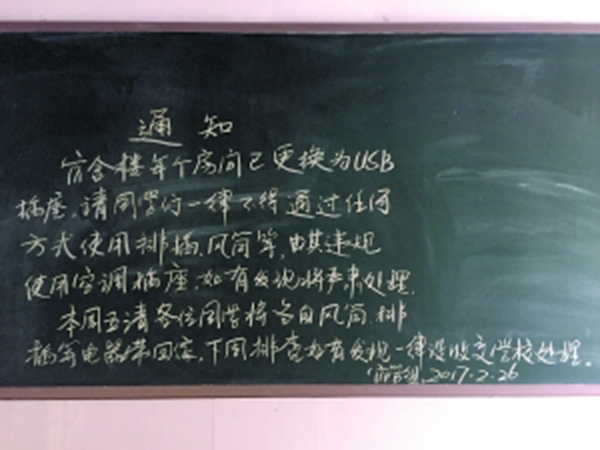 通知
宿舍楼每个房间已更换为USB
插座,请同学们一律不得通过任何
方式使用排插、风筒等,尤其违规
使用空调插座,如有发现将严肃处理.
本周五请各位同学将各自风筒、排
插等电器带回家,下周排查如有发现一律没收交学校处理.
宿管组 2017.2.26